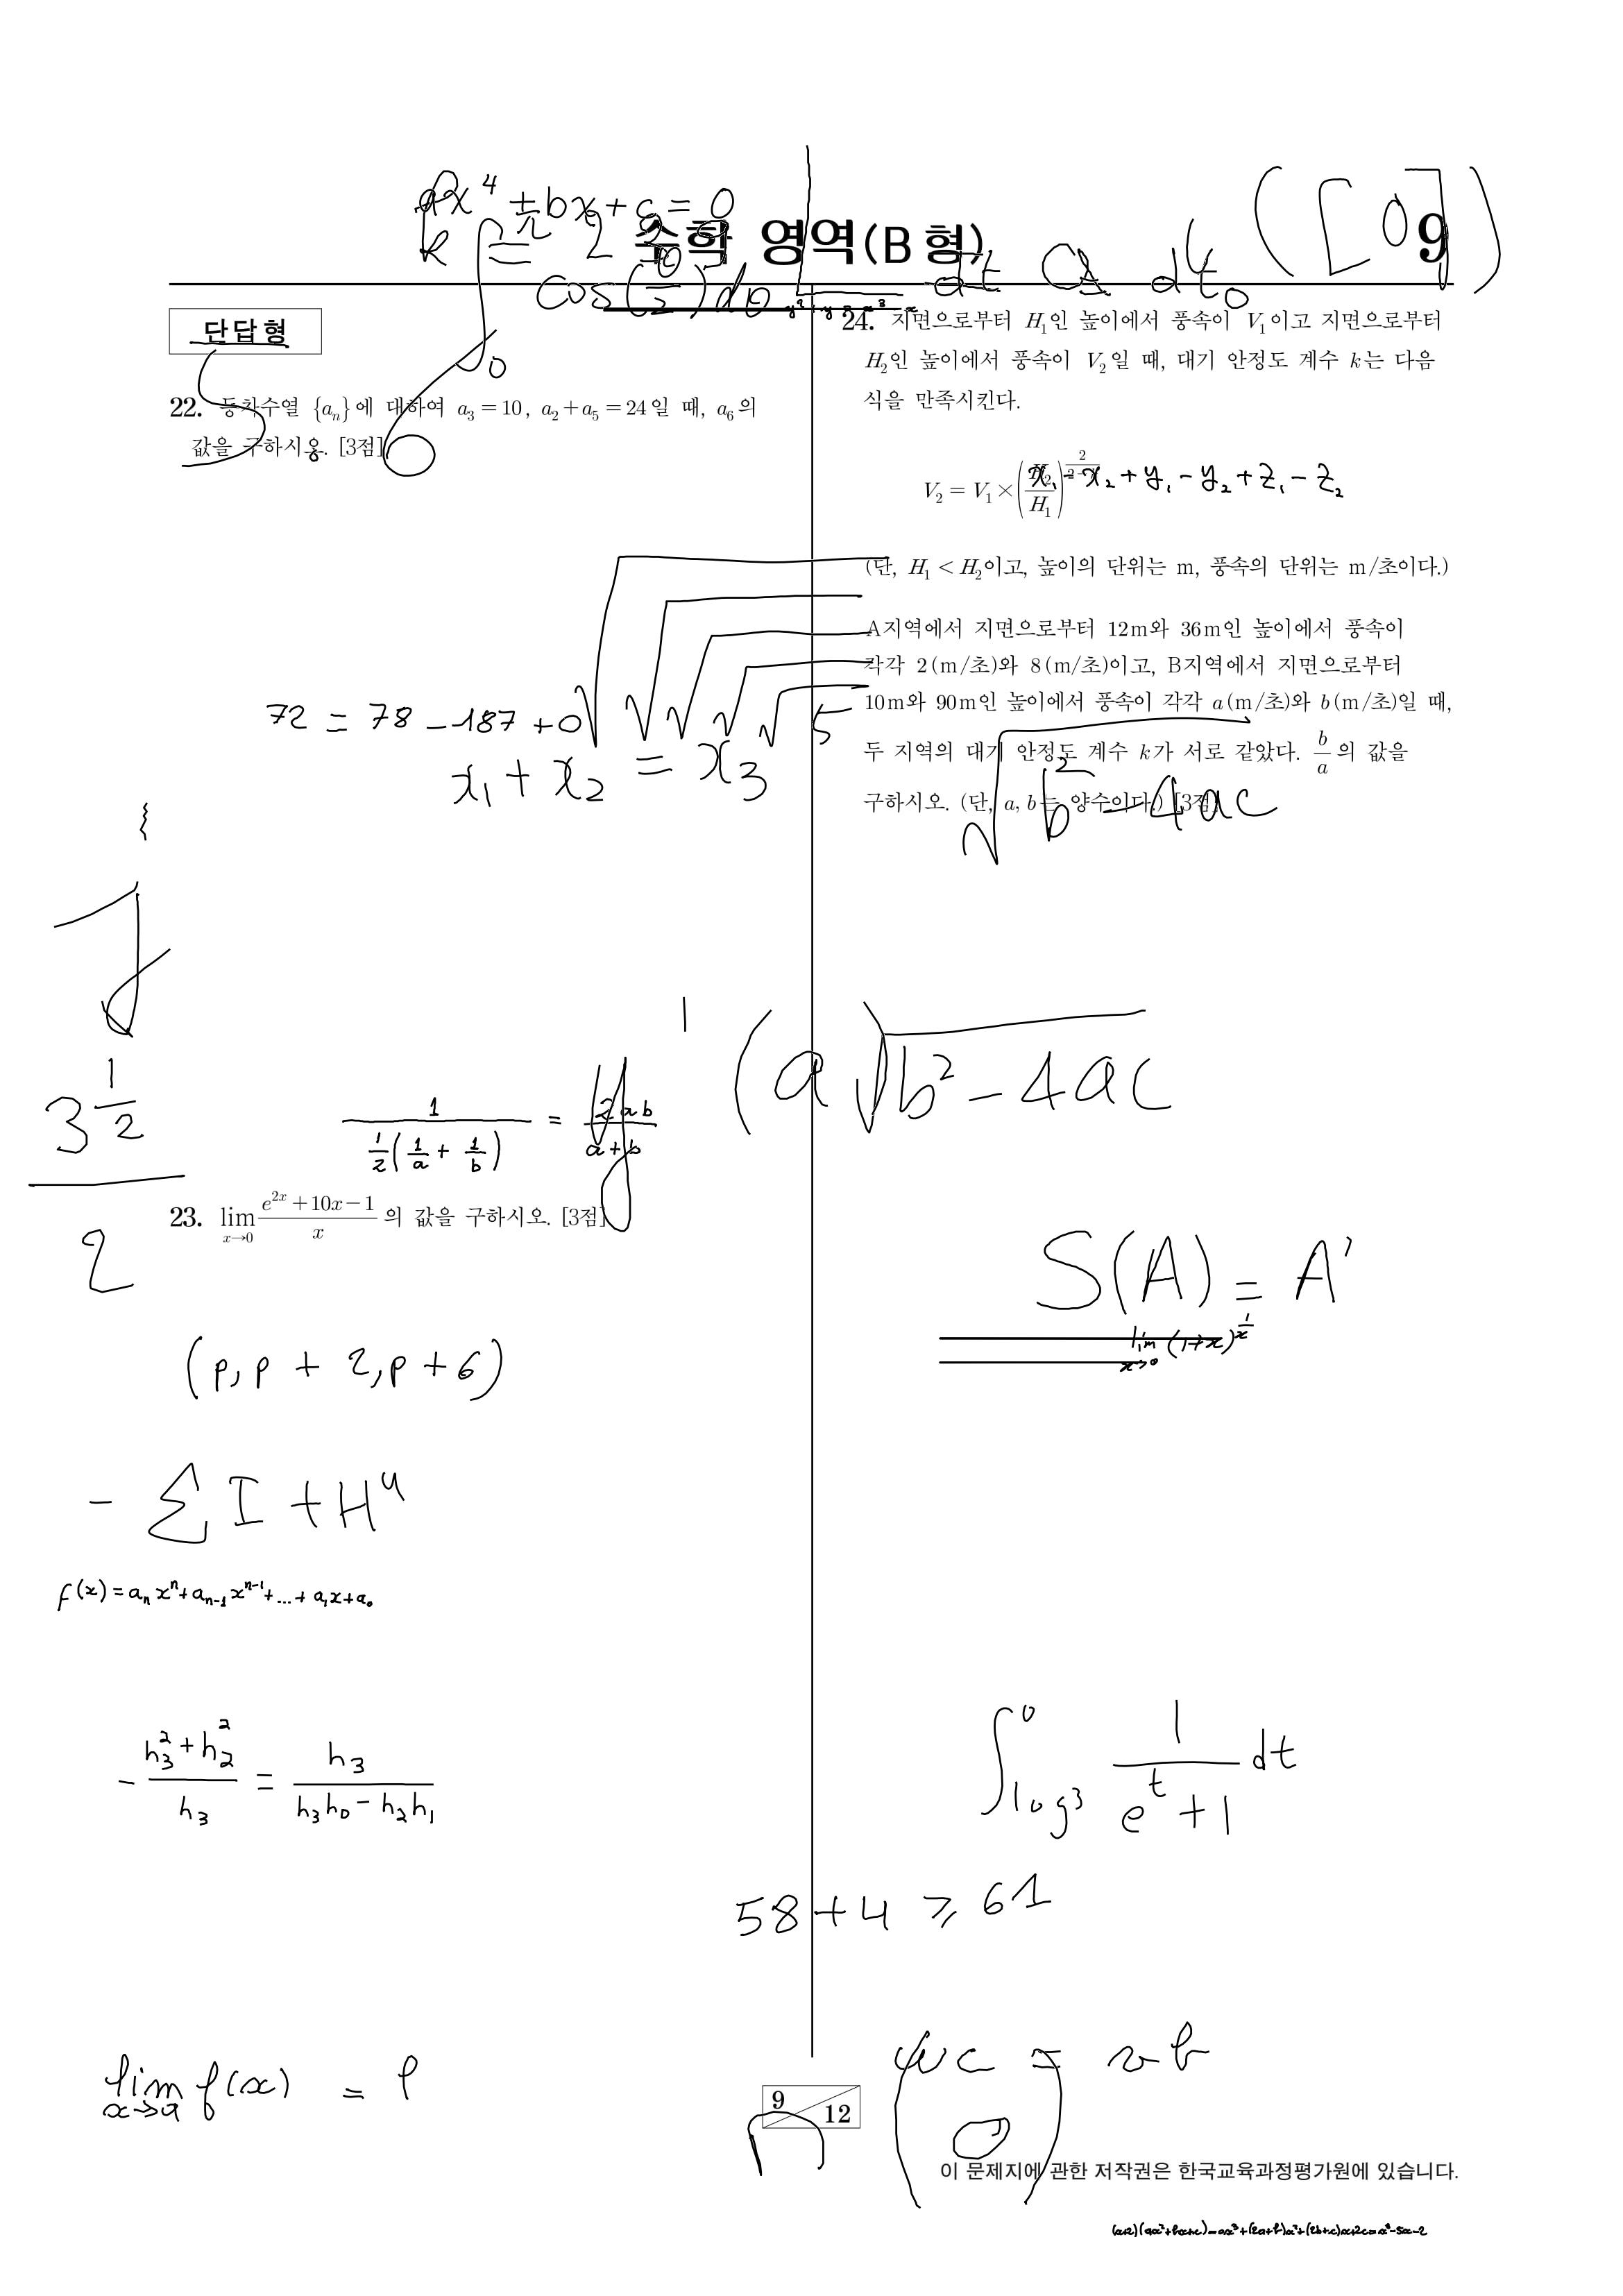 ax⁴ + bx + c = 0
수학 영역(B형)
9
cos(θ/2)dθ
단답형
22. 등차수열 {aₙ}에 대하여 a₃=10, a₂+a₅=24일 때, a₆의
값을 구하시오. [3점]
72 = 78 - 187 + 0√√√√√5
x₁ + x₂ = x₃
3 1/2
2
1/(1/2(1/a + 1/b)) = 2ab/(a+b)
23. lim_{x→0} (e^{2x}+10x-1)/x 의 값을 구하시오. [3점]
(p, p + 2, p + 6)
- Σ I + H⁴
f(x) = aₙxⁿ + aₙ₋₁xⁿ⁻¹ + ... + a₁x + a₀
- (h₃² + h₂²)/h₃ = h₃/(h₃h₀ - h₂h₁)
lim_{x→a} f(x) = l
24. 지면으로부터 H₁인 높이에서 풍속이 V₁이고 지면으로부터
H₂인 높이에서 풍속이 V₂일 때, 대기 안정도 계수 k는 다음
식을 만족시킨다.
V₂ = V₁×(H₂/H₁)
x₁ - x₂ + y₁ - y₂ + z₁ - z₂
(단, H₁<H₂이고, 높이의 단위는 m, 풍속의 단위는 m/초이다.)
A지역에서 지면으로부터 12m와 36m인 높이에서 풍속이
각각 2(m/초)와 8(m/초)이고, B지역에서 지면으로부터
10m와 90m인 높이에서 풍속이 각각 a(m/초)와 b(m/초)일 때,
두 지역의 대기 안정도 계수 k가 서로 같았다. b/a의 값을
구하시오. (단, a, b는 양수이다.) [3점]
√(b² - 4ac)
(a√(b² - 4ac)
S(A) = A'
lim_{x→0} (1+x)^{1/x}
∫_{log3}^{0} 1/(e^t + 1) dt
58 + 4 ≥ 61
9
12
이 문제지에 관한 저작권은 한국교육과정평가원에 있습니다.
(x+2)(ax²+bx+c)=ax³+(2a+b)x²+(2b+c)x+2c=x³-5x-2